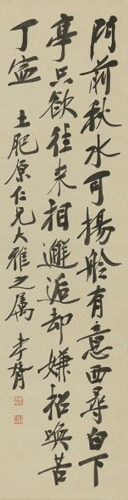 門前秋水可揚舲有意西尋白下
亭只欲往來相邂逅却嫌招喚苦
丁寧
土肥原仁兄大雅之属 孝胥